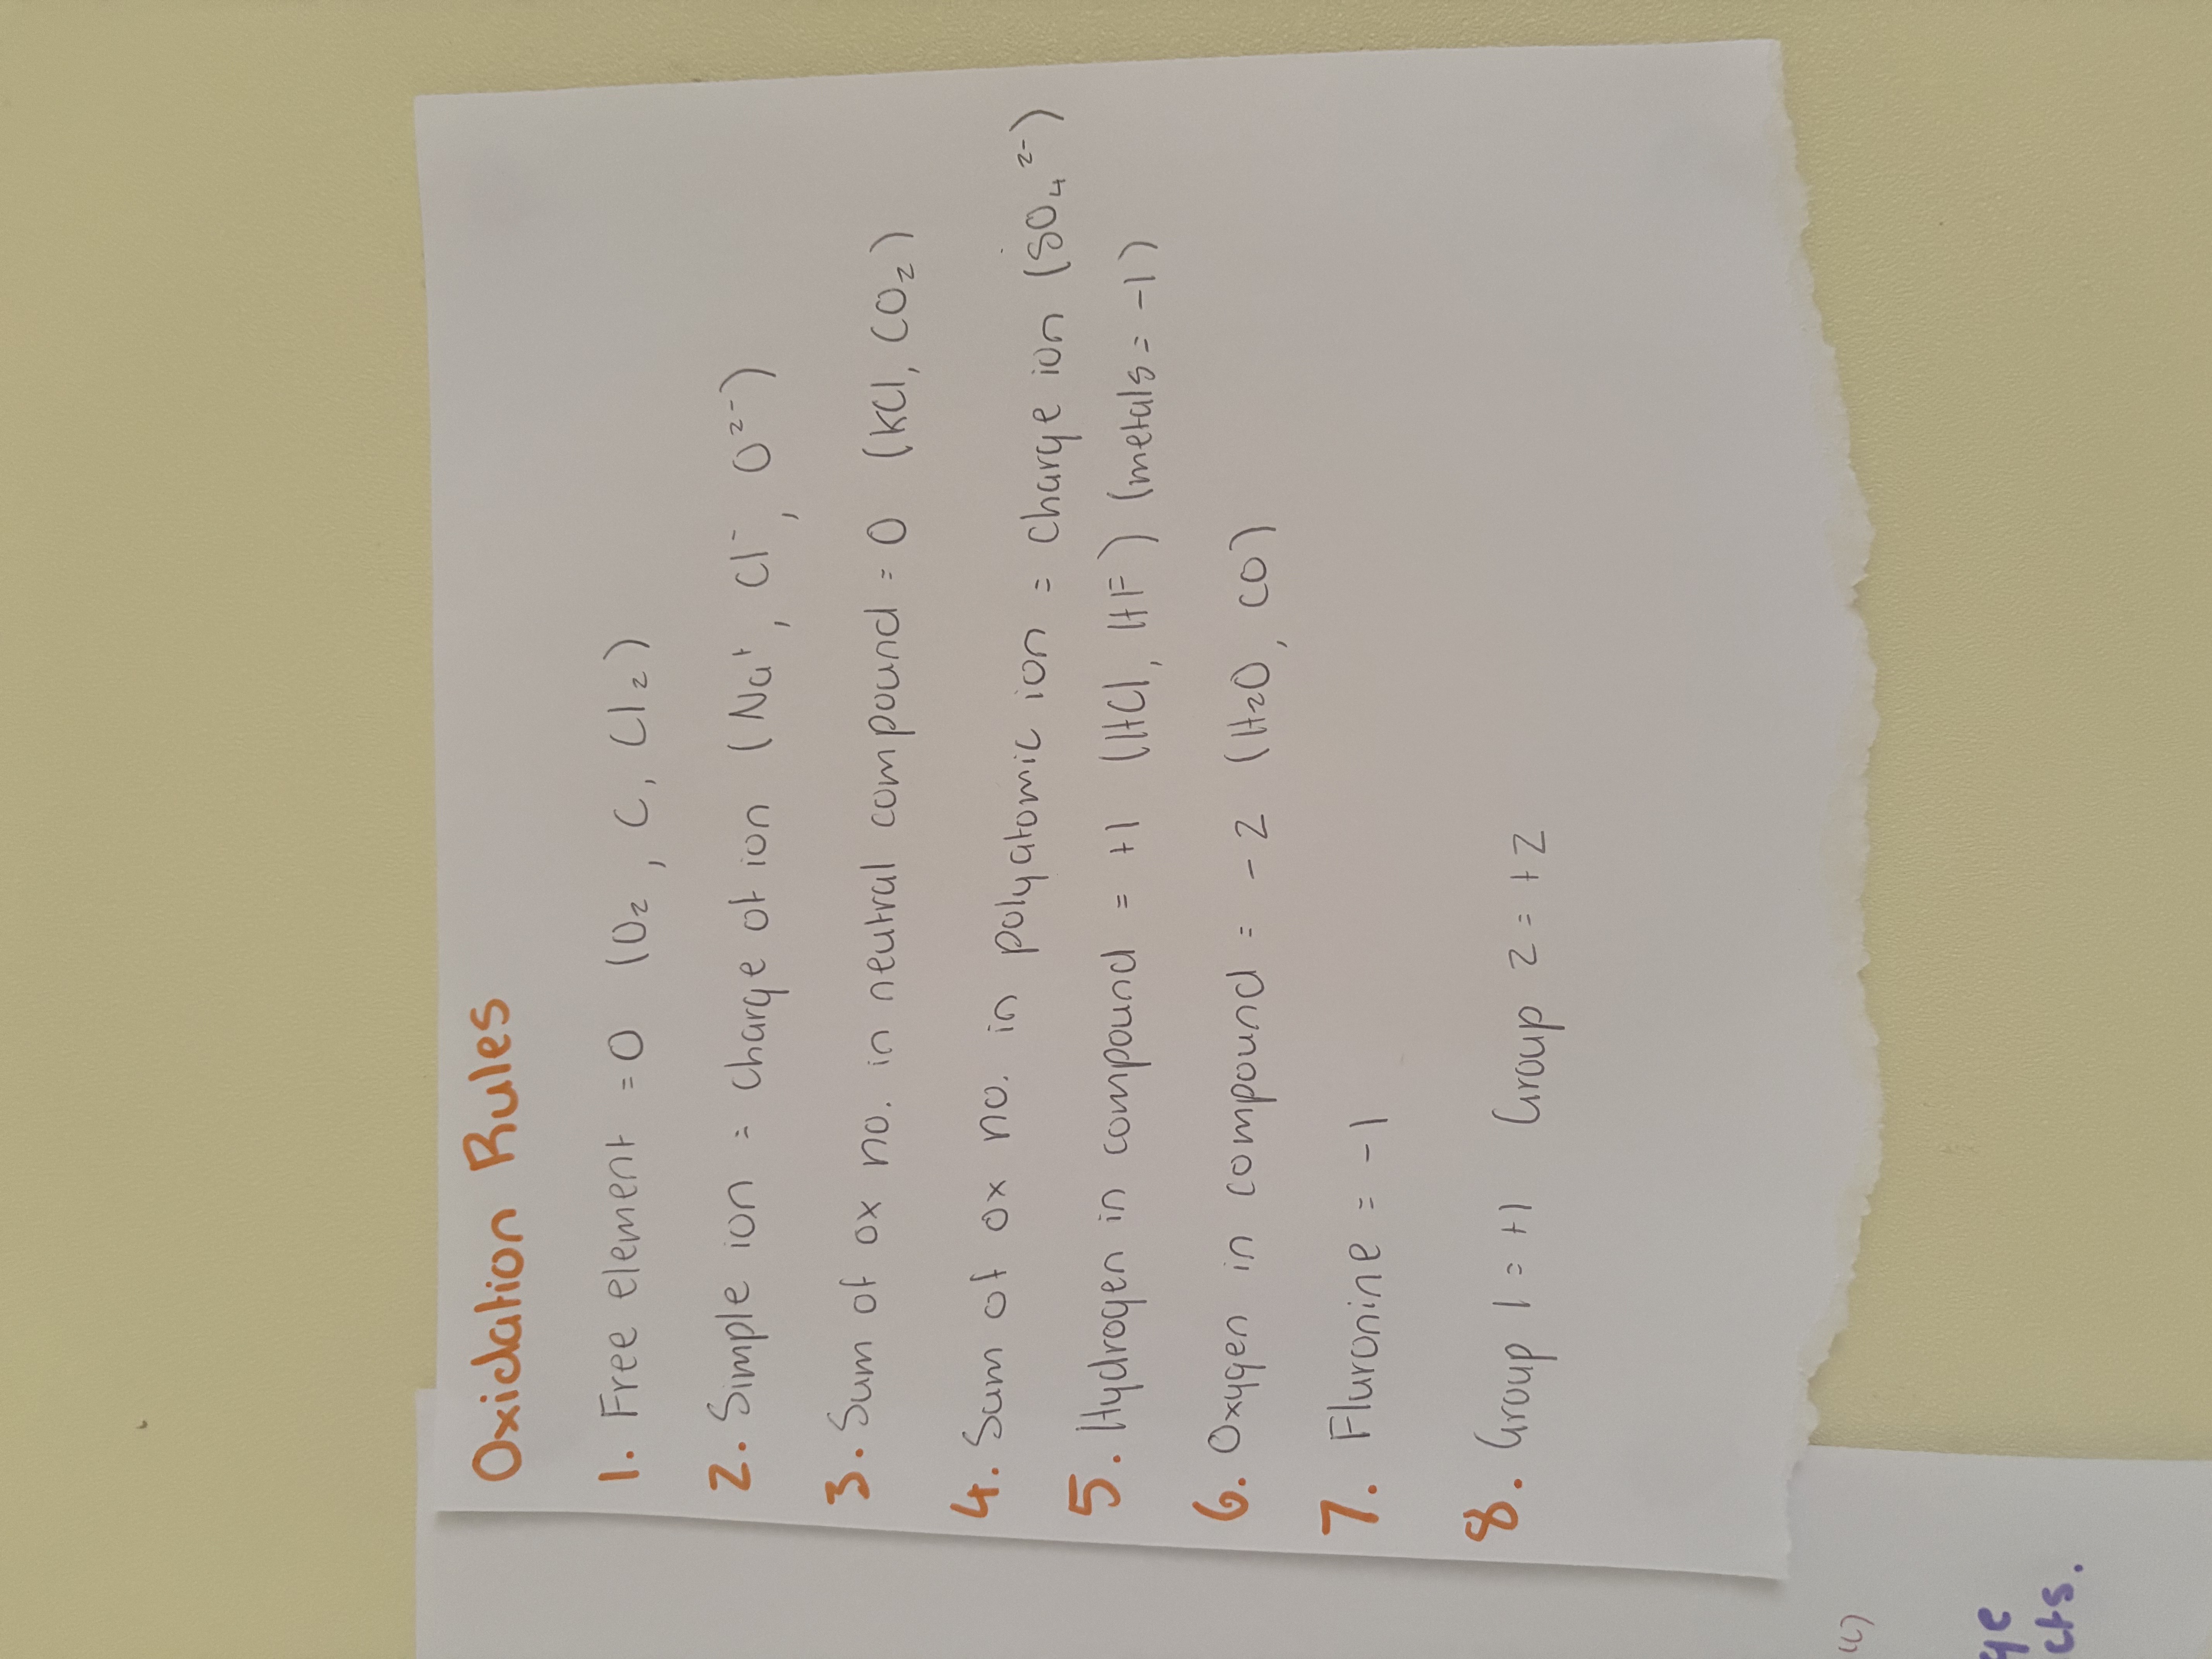 Oxidation Rules
1. Free element = 0 (O₂, C, Cl₂)
2. Simple ion = charge of ion (Na⁺, Cl⁻, O²⁻)
3. Sum of ox no. in neutral compound = 0 (KCl, CO₂)
4. Sum of ox no. in polyatomic ion = charge ion (SO₄²⁻)
5. Hydrogen in compound = +1 (HCl, HF) (metals = -1)
6. Oxygen in compound = -2 (H₂O, CO)
7. Fluronine = -1
8. Group 1 = +1 Group 2 = +2